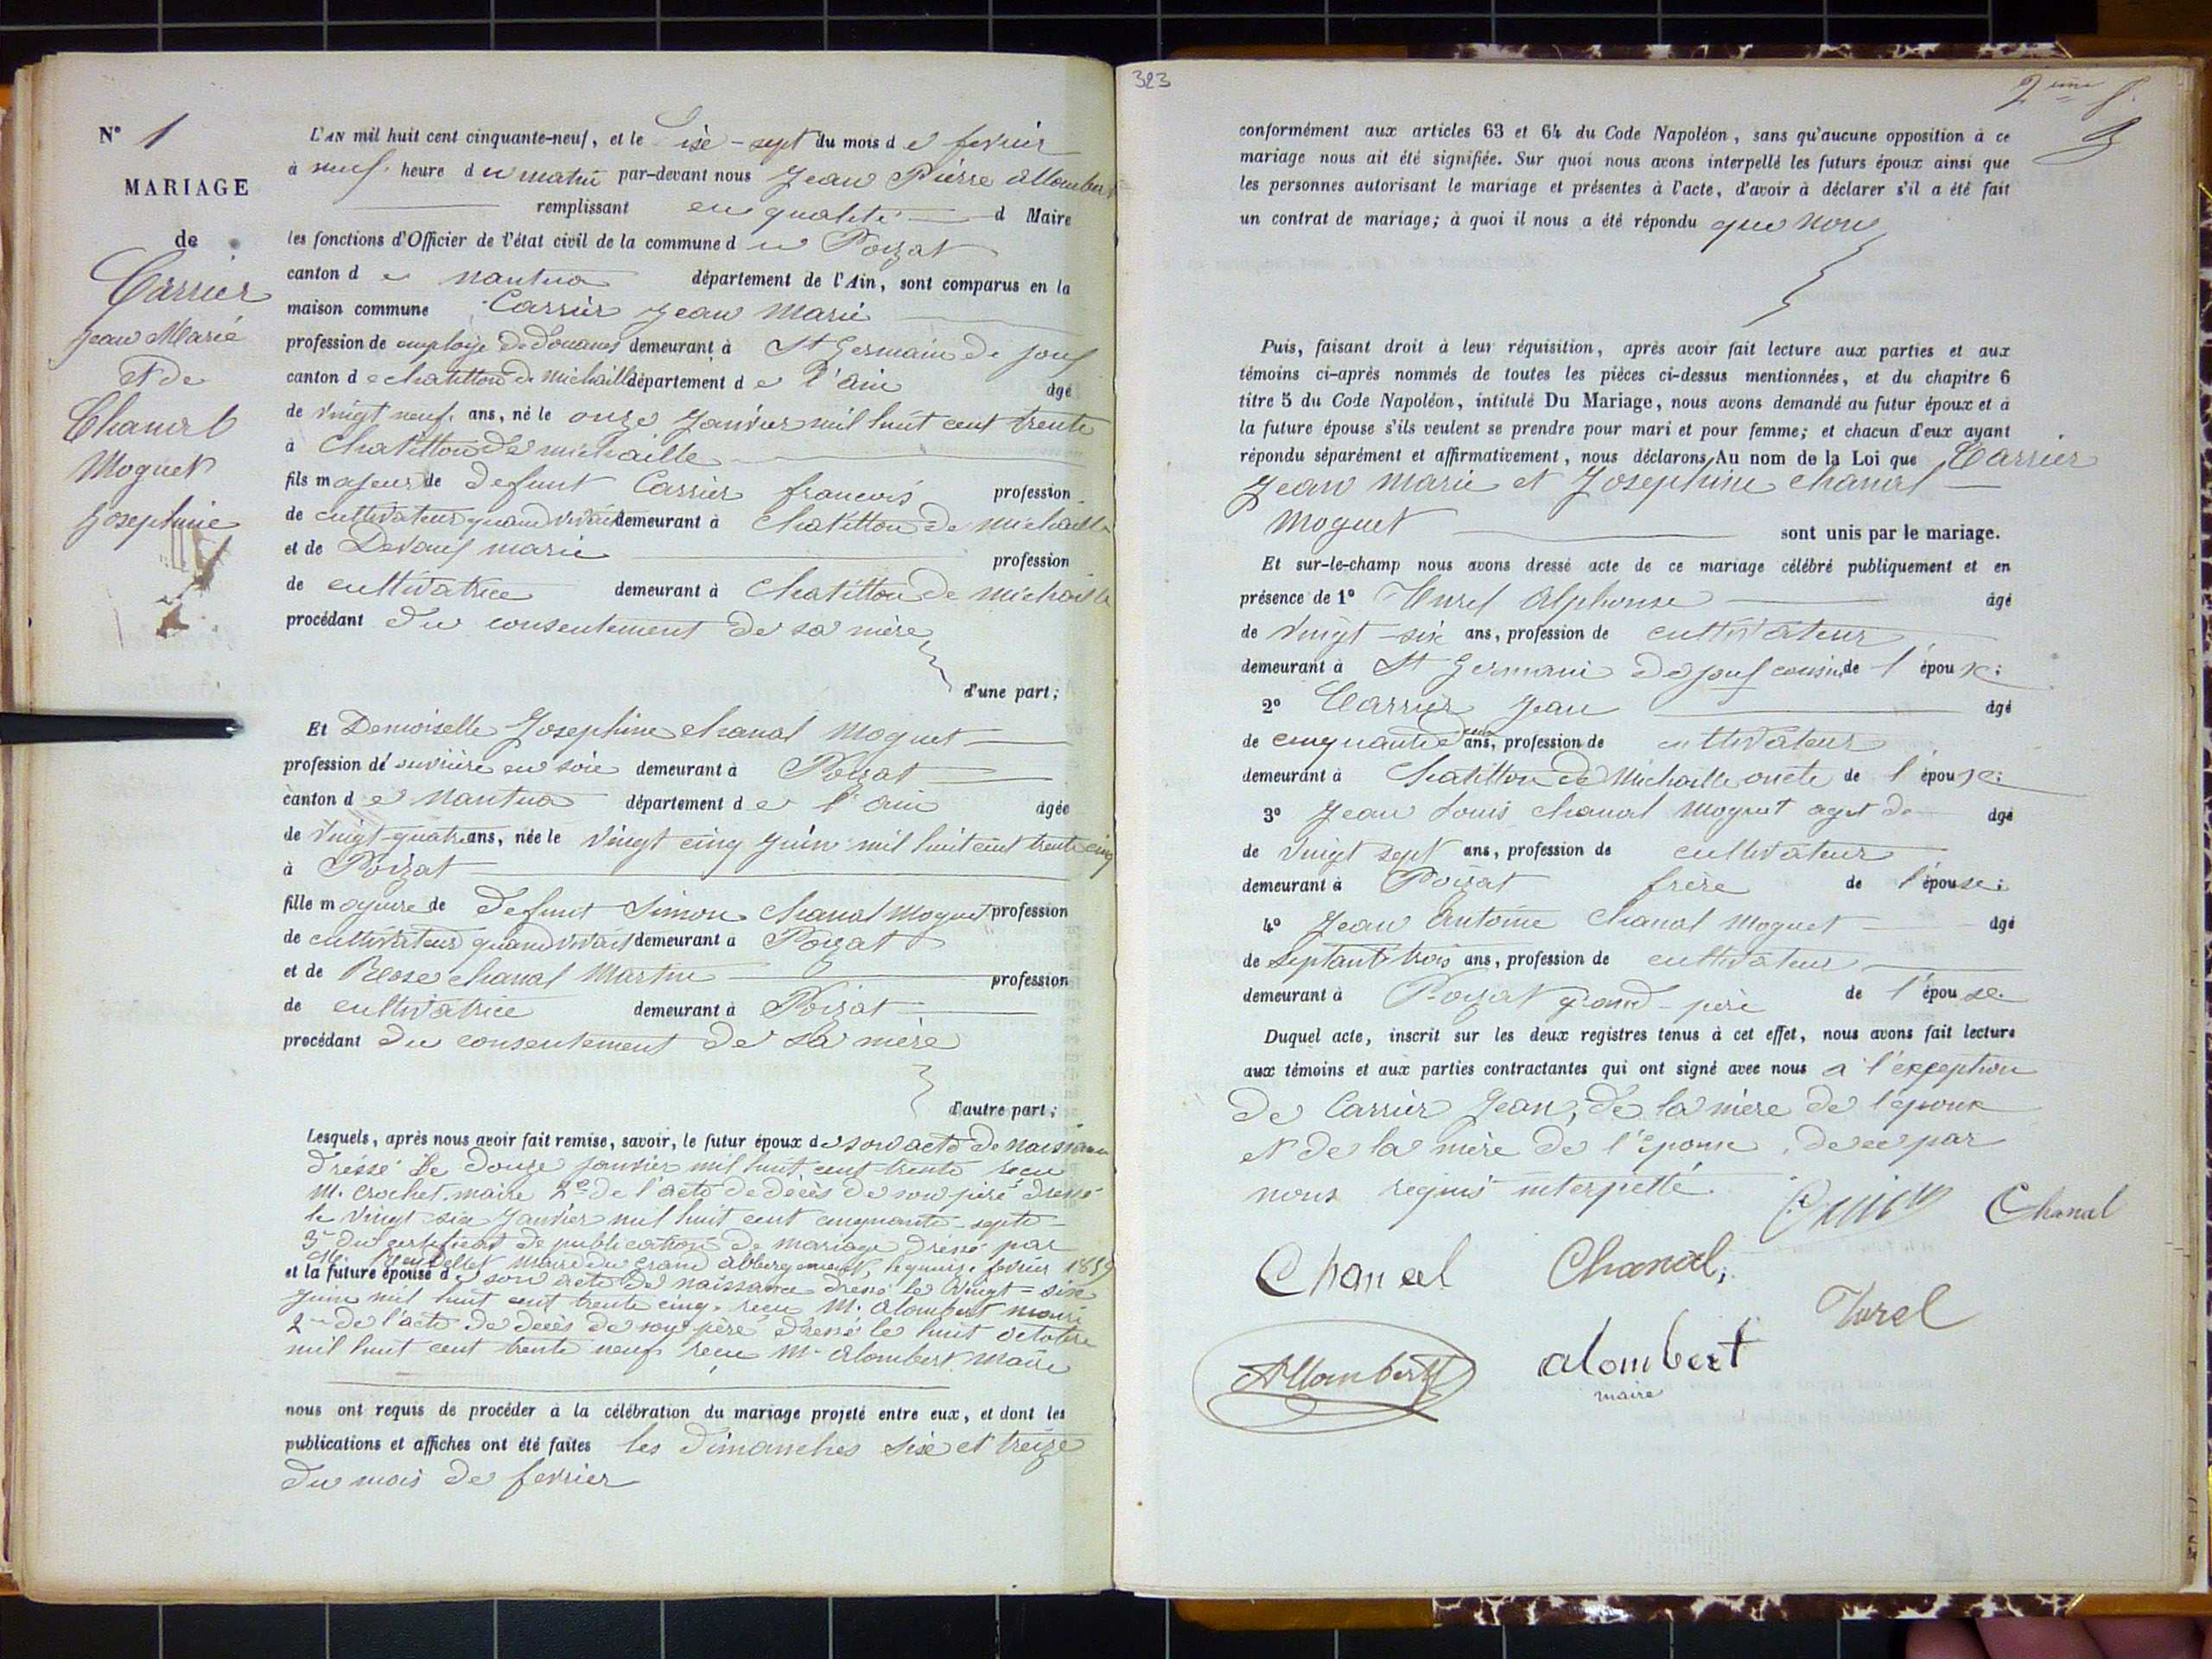 N° 1
MARIAGE
de
Carrier
Jean Marie
Et de
Chanal
Moguet
Josephine
L'AN mil huit cent cinquante-neuf, et le dise-sept du mois de fevrier
à neuf heure du matin par-devant nous Jean Pierre Allombert
remplissant en qualité d Maire
les fonctions d'Officier de l'état civil de la commune du Poizat
canton de nantua département de l'Ain, sont comparus en la
maison commune Carrier Jean Marie
profession de employé de douanes demeurant à St Germain de joux
canton de chatillon de michaille département de l'ain âgé
de vingt neuf ans, né le onze janvier mil huit cent trente
à Chatillon de michaille
fils majeur de defunt Carrier francois profession
de cultivateur quand vivait demeurant à Chatillon de michaille
et de marie profession
de cultivatrice demeurant à Chatillon de michaille
procédant du consentement de sa mère
d'une part;
Et Demoiselle Josephine chanal Moguet
profession de ouvrière en soie demeurant à Poizat
canton de Nantua département de l'ain âgée
de vingt-quatre ans, née le vingt cinq juin mil huit cent trente cinq
à Poizat
fille majeure de defunt Simon Chanal Moguet profession
de cultivateur quand vivait demeurant à Poizat
et de Rose chanal Martin profession
de cultivatrice demeurant à Poizat
procédant du consentement de sa mère
d'autre part;
Lesquels, après nous avoir fait remise, savoir, le futur époux de son acte de naissance
dressé le douze janvier mil huit cent trente reçu
M. Crochet maire 2° de l'acte de décès de son père dressé
le vingt six janvier mil huit cent cinquante-septe
3° du certificat de publication de mariage dressé par
M. maire du Grand abbergement, le quinze fevrier 1859
et la future épouse de son acte de naissance dressé le vingt-six
juin mil huit cent trente cinq. reçu M. alombert maire
2° de l'acte de decès de son père dressé le huit octobre
mil huit cent trente neuf reçu M. alombert maire
nous ont requis de procéder à la célébration du mariage projeté entre eux, et dont les
publications et affiches ont été faites les dimanches sixe et treize
du mois de fevrier
323
2ème f.
conformément aux articles 63 et 64 du Code Napoléon, sans qu'aucune opposition à ce
mariage nous ait été signifiée. Sur quoi nous avons interpellé les futurs époux ainsi que
les personnes autorisant le mariage et présentes à l'acte, d'avoir à déclarer s'il a été fait
un contrat de mariage; à quoi il nous a été répondu que non
Puis, faisant droit à leur réquisition, après avoir fait lecture aux parties et aux
témoins ci-après nommés de toutes les pièces ci-dessus mentionnées, et du chapitre 6
titre 5 du Code Napoléon, intitulé Du Mariage, nous avons demandé au futur époux et à
la future épouse s'ils veulent se prendre pour mari et pour femme; et chacun d'eux ayant
répondu séparément et affirmativement, nous déclarons Au nom de la Loi que Carrier
Jean Marie et Josephine chanal
Moguet sont unis par le mariage.
Et sur-le-champ nous avons dressé acte de ce mariage célébré publiquement et en
présence de 1° Turel Alphonse âgé
de vingt-six ans, profession de cultivateur
demeurant à St Germain de joux cousin de l'épouse:
2° Carrier Jean âgé
de cinquante ans, profession de cultivateur
demeurant à Chatillon de Michaille oncle de l'épouse:
3° Jean Louis chanal Moguet aget de âgé
de vingt sept ans, profession de cultivateur
demeurant à Poizat frère de l'épouse:
4° Jean Antoine Chanal Moguet âgé
de septante trois ans, profession de cultivateur
demeurant à Poizat grand-père de l'épouse
Duquel acte, inscrit sur les deux registres tenus à cet effet, nous avons fait lecture
aux témoins et aux parties contractantes qui ont signé avec nous à l'exception
de Carrier Jean, de la mère de l'époux
et de la mère de l'épouse, de ce par
nous requis interpellé
Chanal
Chanal
Chanal,
Turel
Allombert
alombert
maire